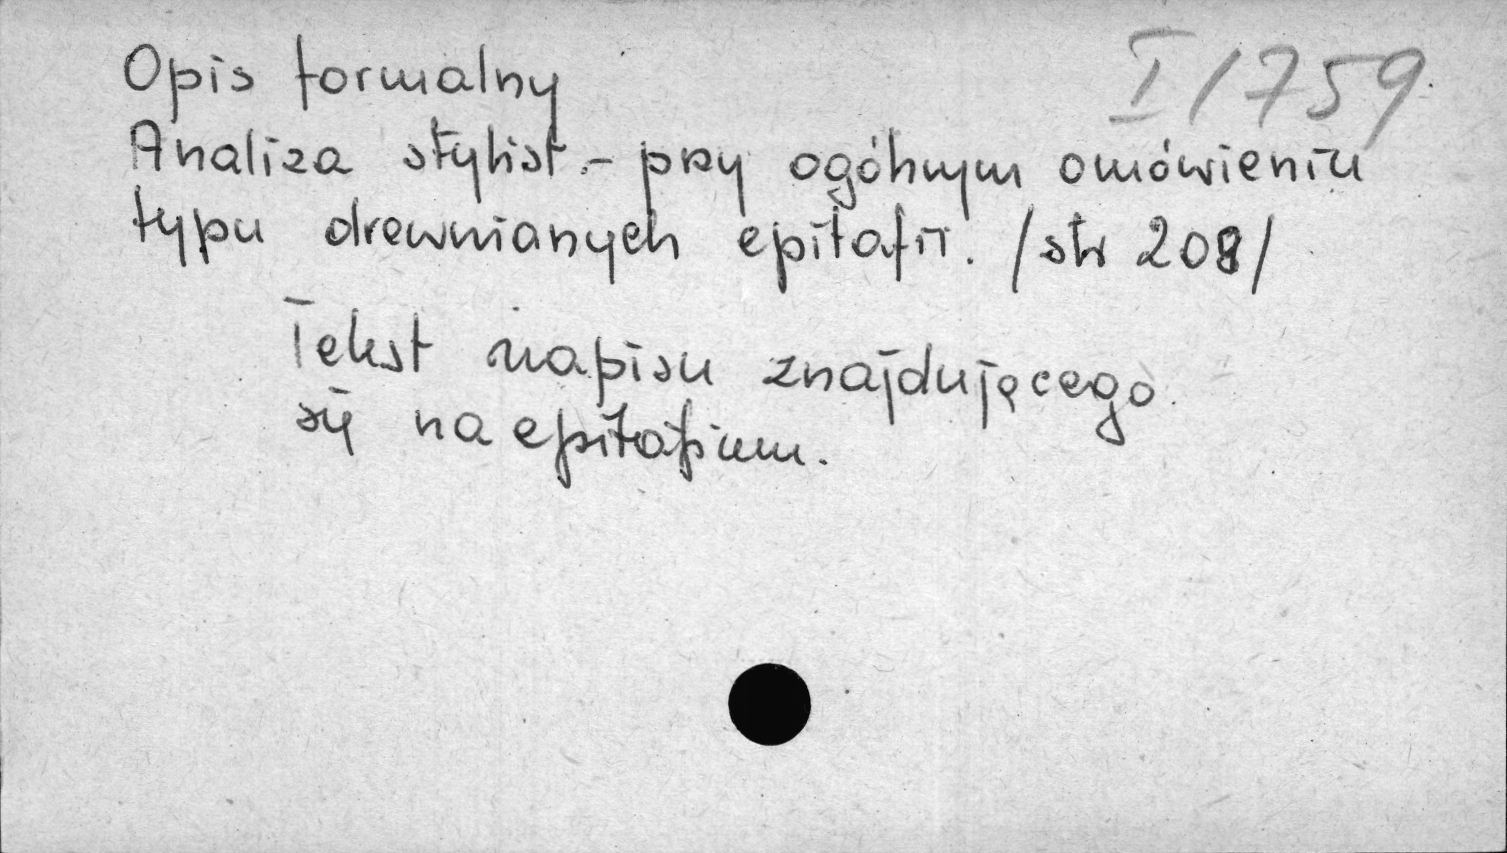 I/759
Opis formalny
Analiza stylist. - przy ogólnym omówieniu
typu drewnianych epitafii. /str 208/
Tekst napisu znajdującego
się na epitafium.